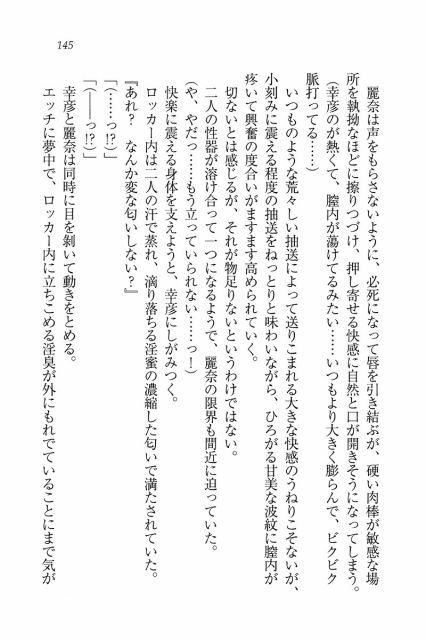 145
麗奈は声をもらさないように、必死になって唇を引き結ぶが、硬い肉棒が敏感な場
所を執拗なほどに擦りつづけ、押し寄せる快感に自然と口が開きそうになってしまう。
(幸彦のが熱くて、膣内が蕩けてるみたい……いつもより大きく膨らんで、ビクビク
脈打ってる……)
いつものような荒々しい抽送によって送りこまれる大きな快感のうねりこそないが、
小刻みに震える程度の抽送をねっとりと味わいながら、ひろがる甘美な波紋に膣内が
疼いて興奮の度合いがますます高められていく。
切ないとは感じるが、それが物足りないというわけではない。
二人の性器が溶け合って一つになるようで、麗奈の限界も間近に迫っていた。
(や、やだっ……もう立っていられない……っー)
快楽に震える身体を支えようと、幸彦にしがみつく。
ロッカー内は二人の汗で蒸れ、滴り落ちる淫蜜の濃縮した匂いで満たされていた。
『あれ？　なんか変な匂いしない？』
「(……っ!?)」
「(――っ!?)」
幸彦と麗奈は同時に目を剝いて動きをとめる。
エッチに夢中で、ロッカー内に立ちこめる淫臭が外にもれでていることにまで気が